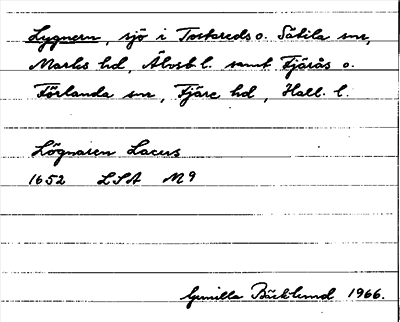 Lygnern, sjö i Tostareds o. Sätila snr,
Marks hd, Älvsb l. samt Fjärås o.
Förlanda snr, Fjäre hd, Hall. l.
Lögnaren Lacus
1652 LSA M9
Gunilla Bäcklund 1966.